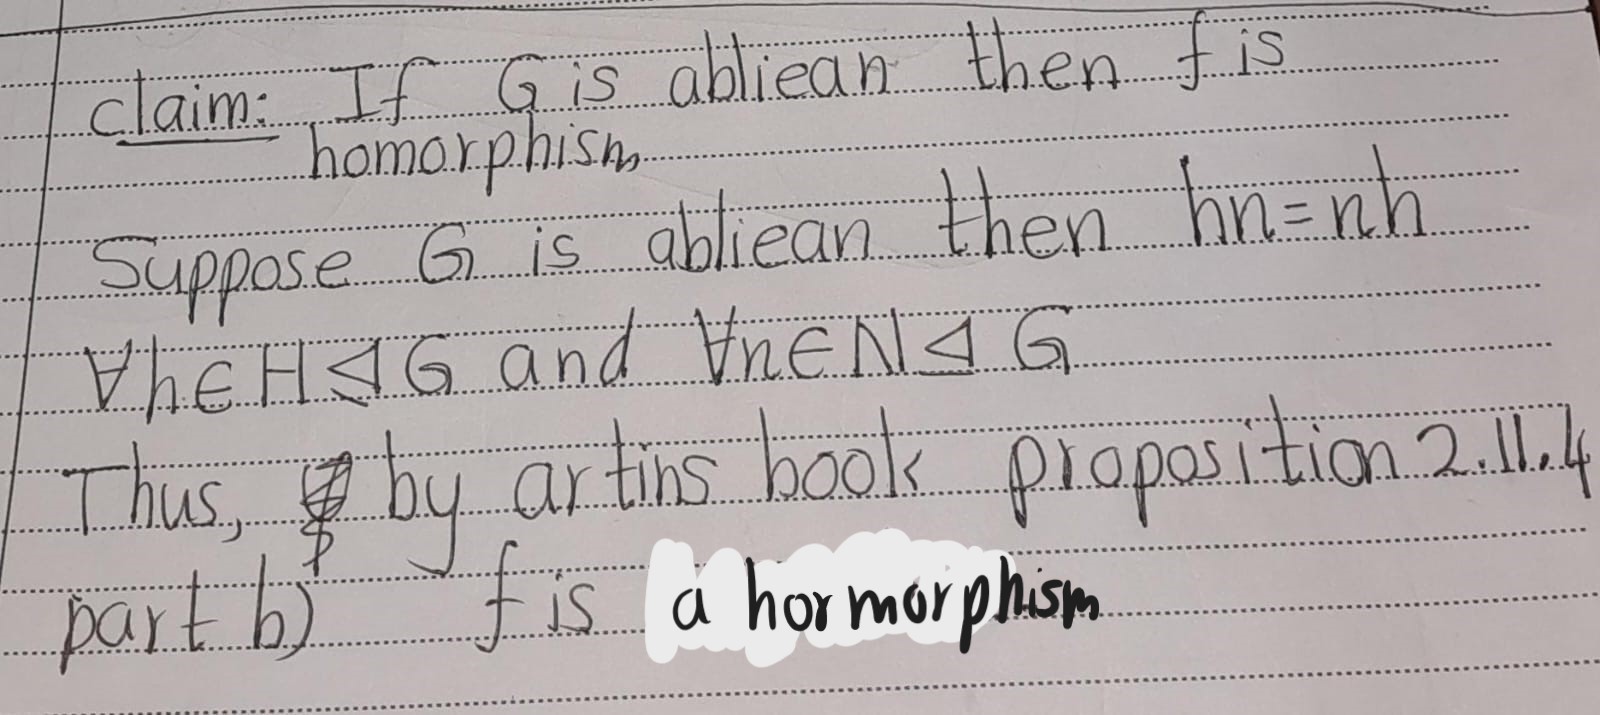 claim: If G is abliean then f is
homorphism
Suppose G is abliean then hn=nh
∀h∈H⊴G and ∀n∈N⊴G
Thus, by artins book proposition 2.11.4
part b) f is a hormorphism